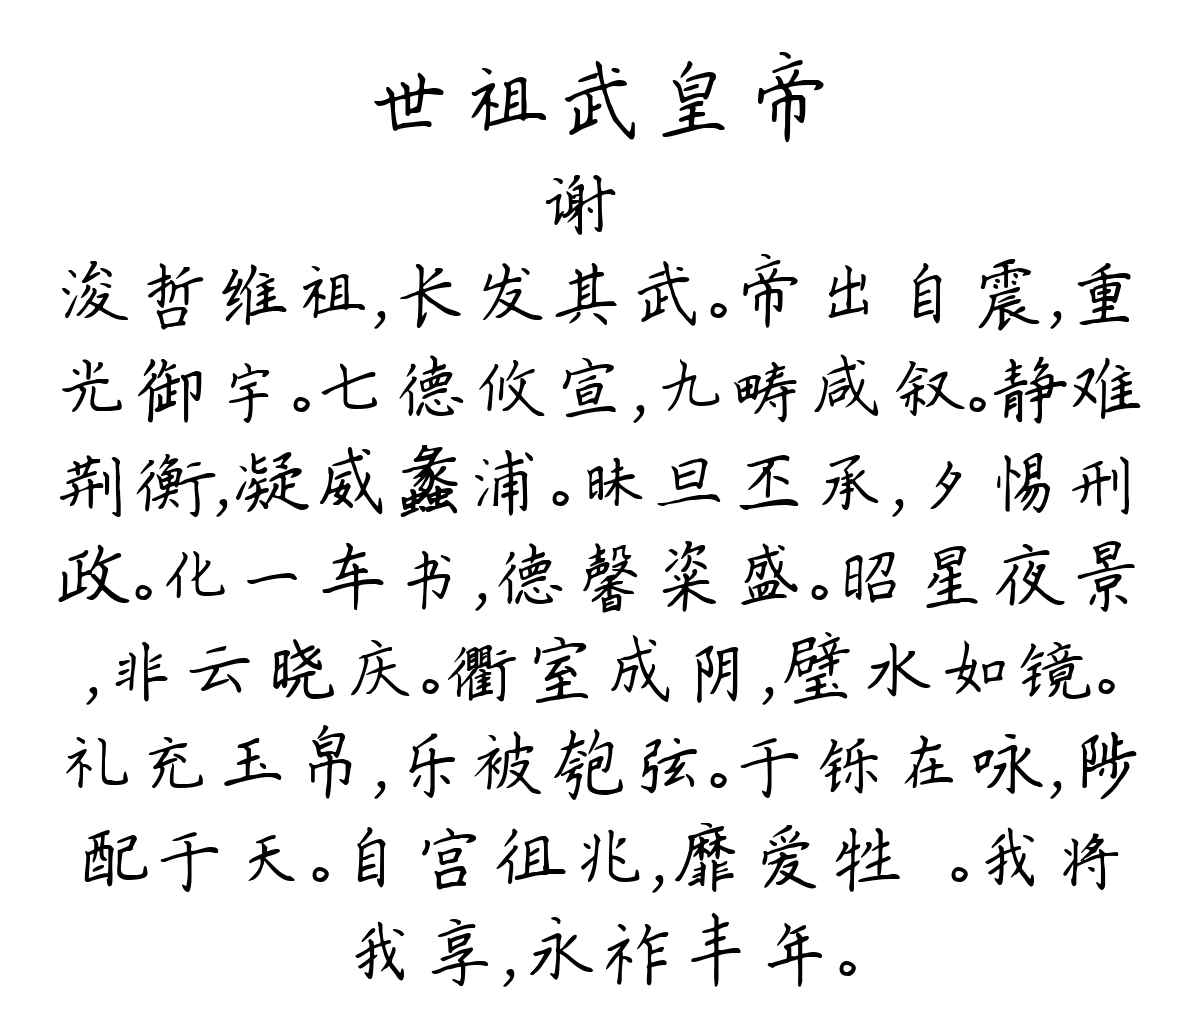 世祖武皇帝
谢
浚哲维祖,长发其武。帝出自震,重
光御宇。七德攸宣,九畴咸叙。静难
荆衡,凝威蠡浦。昧旦丕承,夕惕刑
政。化一车书,德馨粢盛。昭星夜景
,非云晓庆。衢室成阴,璧水如镜。
礼充玉帛,乐被匏弦。于铄在咏,陟
配于天。自宫徂兆,靡爱牲 。我将
我享,永祚丰年。